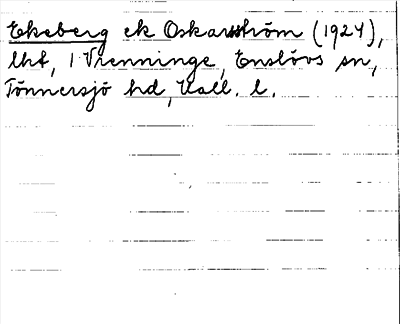 Ekeberg ek Oskarström (1924),
lht, 1 Vrenninge, Enslövs sn,
Tönnersjö hd, Hall. l.